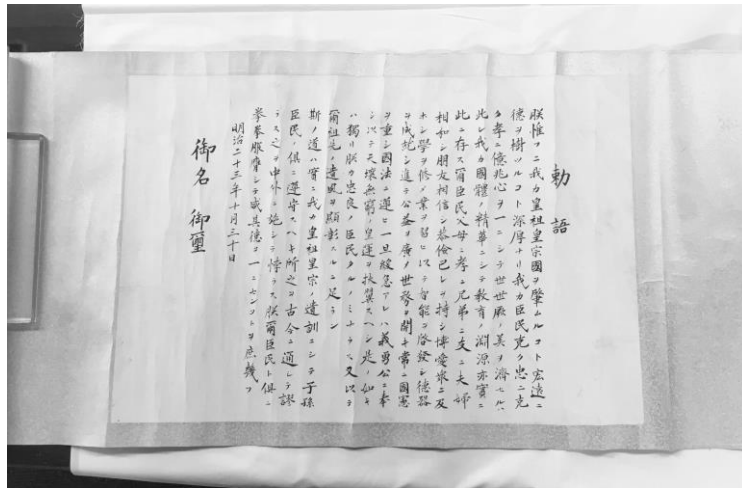 勅語
朕惟フニ我カ皇祖皇宗國ヲ肇ムルコト宏遠ニ
德ヲ樹ツルコト深厚ナリ我カ臣民克ク忠ニ克
ク孝ニ億兆心ヲ一ニシテ世世厥ノ美ヲ濟セルハ
此レ我カ國體ノ精華ニシテ教育ノ淵源亦實ニ
此ニ存ス爾臣民父母ニ孝ニ兄弟ニ友ニ夫婦
相和シ朋友相信シ恭儉己レヲ持シ博愛衆ニ及
ホシ學ヲ修メ業ヲ習ヒ以テ智能ヲ啓發シ德器
ヲ成就シ進テ公益ヲ廣メ世務ヲ開キ常ニ國憲
ヲ重シ國法ニ遵ヒ一旦緩急アレハ義勇公ニ奉
シ以テ天壤無窮ノ皇運ヲ扶翼スヘシ是ノ如キ
ハ獨リ朕カ忠良ノ臣民タルノミナラス又以テ
爾祖先ノ遺風ヲ顯彰スルニ足ラン
斯ノ道ハ實ニ我カ皇祖皇宗ノ遺訓ニシテ子孫
臣民ノ俱ニ遵守スヘキ所之ヲ古今ニ通シテ謬
ラス之ヲ中外ニ施シテ悖ラス朕爾臣民ト俱ニ
拳拳服膺シテ咸其德ヲ一ニセンコトヲ庶幾フ
明治二十三年十月三十日
御名 御璽